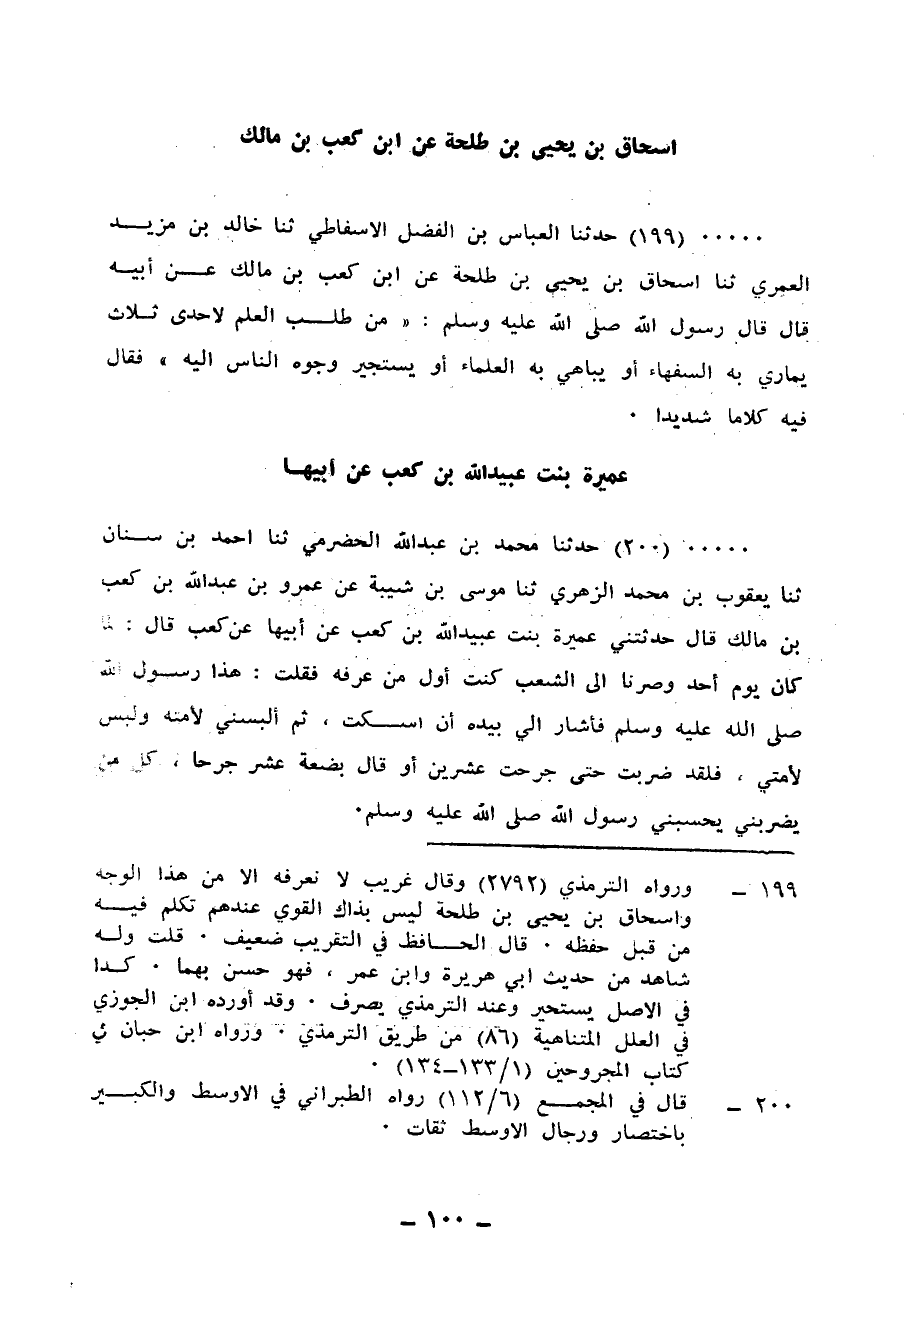 اسحاق بن يحيى بن طلحة عن ابن كعب بن مالك
..... (١٩٩) حدثنا العباس بن الفضل الاسفاطي ثنا خالد بن مزيــد
العمري ثنا اسحاق بن يحيى بن طلحة عن ابن كعب بن مالك عــن أبيــه
قال قال رسول الله صلى الله عليه وسلم : « من طلــب العلم لاحدى ثــلاث
يماري به السفهاء أو يباهي به العلماء أو يستجير وجوه الناس اليه » فقال
فيه كلاما شديدا ٠
عميرة بنت عبيدالله بن كعب عن أبيهــا
..... (٢٠٠) حدثنا محمد بن عبدالله الحضرمي ثنا احمد بن ســنان
ثنا يعقوب بن محمد الزهري ثنا موسى بن شيبة عن عمرو بن عبدالله بن كعب
بن مالك قال حدثتني عميرة بنت عبيدالله بن كعب عن أبيها عن كعب قال : لما
كان يوم أحد وصرنا الى الشعب كنت أول من عرفه فقلت : هذا رســول الله
صلى الله عليه وسلم فأشار الي بيده أن اســكت ، ثم ألبسني لأمته ولبس
لأمتي ، فلقد ضربت حتى جرحت عشرين أو قال بضعة عشر جرحا ، كل من
يضربني يحسبني رسول الله صلى الله عليه وسلم٠
١٩٩ ــ ورواه الترمذي (٢٧٩٢) وقال غريب لا نعرفه الا من هذا الوجه
واسحاق بن يحيى بن طلحة ليس بذاك القوي عندهم تكلم فيــه
من قبل حفظه ٠ قال الحــافظ في التقريب ضعيف ٠ قلت ولــه
شاهد من حديث ابي هريرة وابن عمر ، فهو حسن بهما ٠ كــذا
في الاصل يستجير وعند الترمذي يصرف ٠ وقد أورده ابن الجوزي
في العلل المتناهية (٨٦) من طريق الترمذي ٠ ورواه ابن حبان في
كتاب المجروحين (١/١٣٣ــ١٣٤) ٠
٢٠٠ ــ قال في المجمــع (٦/١١٢) رواه الطبراني في الاوسط والكبــير
باختصار ورجال الاوسط ثقات ٠
ــ ١٠٠ ــ